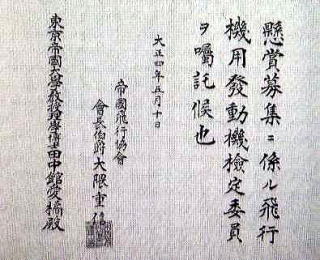 懸賞募集ニ係ル飛行
機用發動機檢定委員
ヲ囑託候也
大正四年五月十日
帝國飛行協會
會長伯爵大隈重信
東京帝國大學教授理學博士田中館愛橘殿